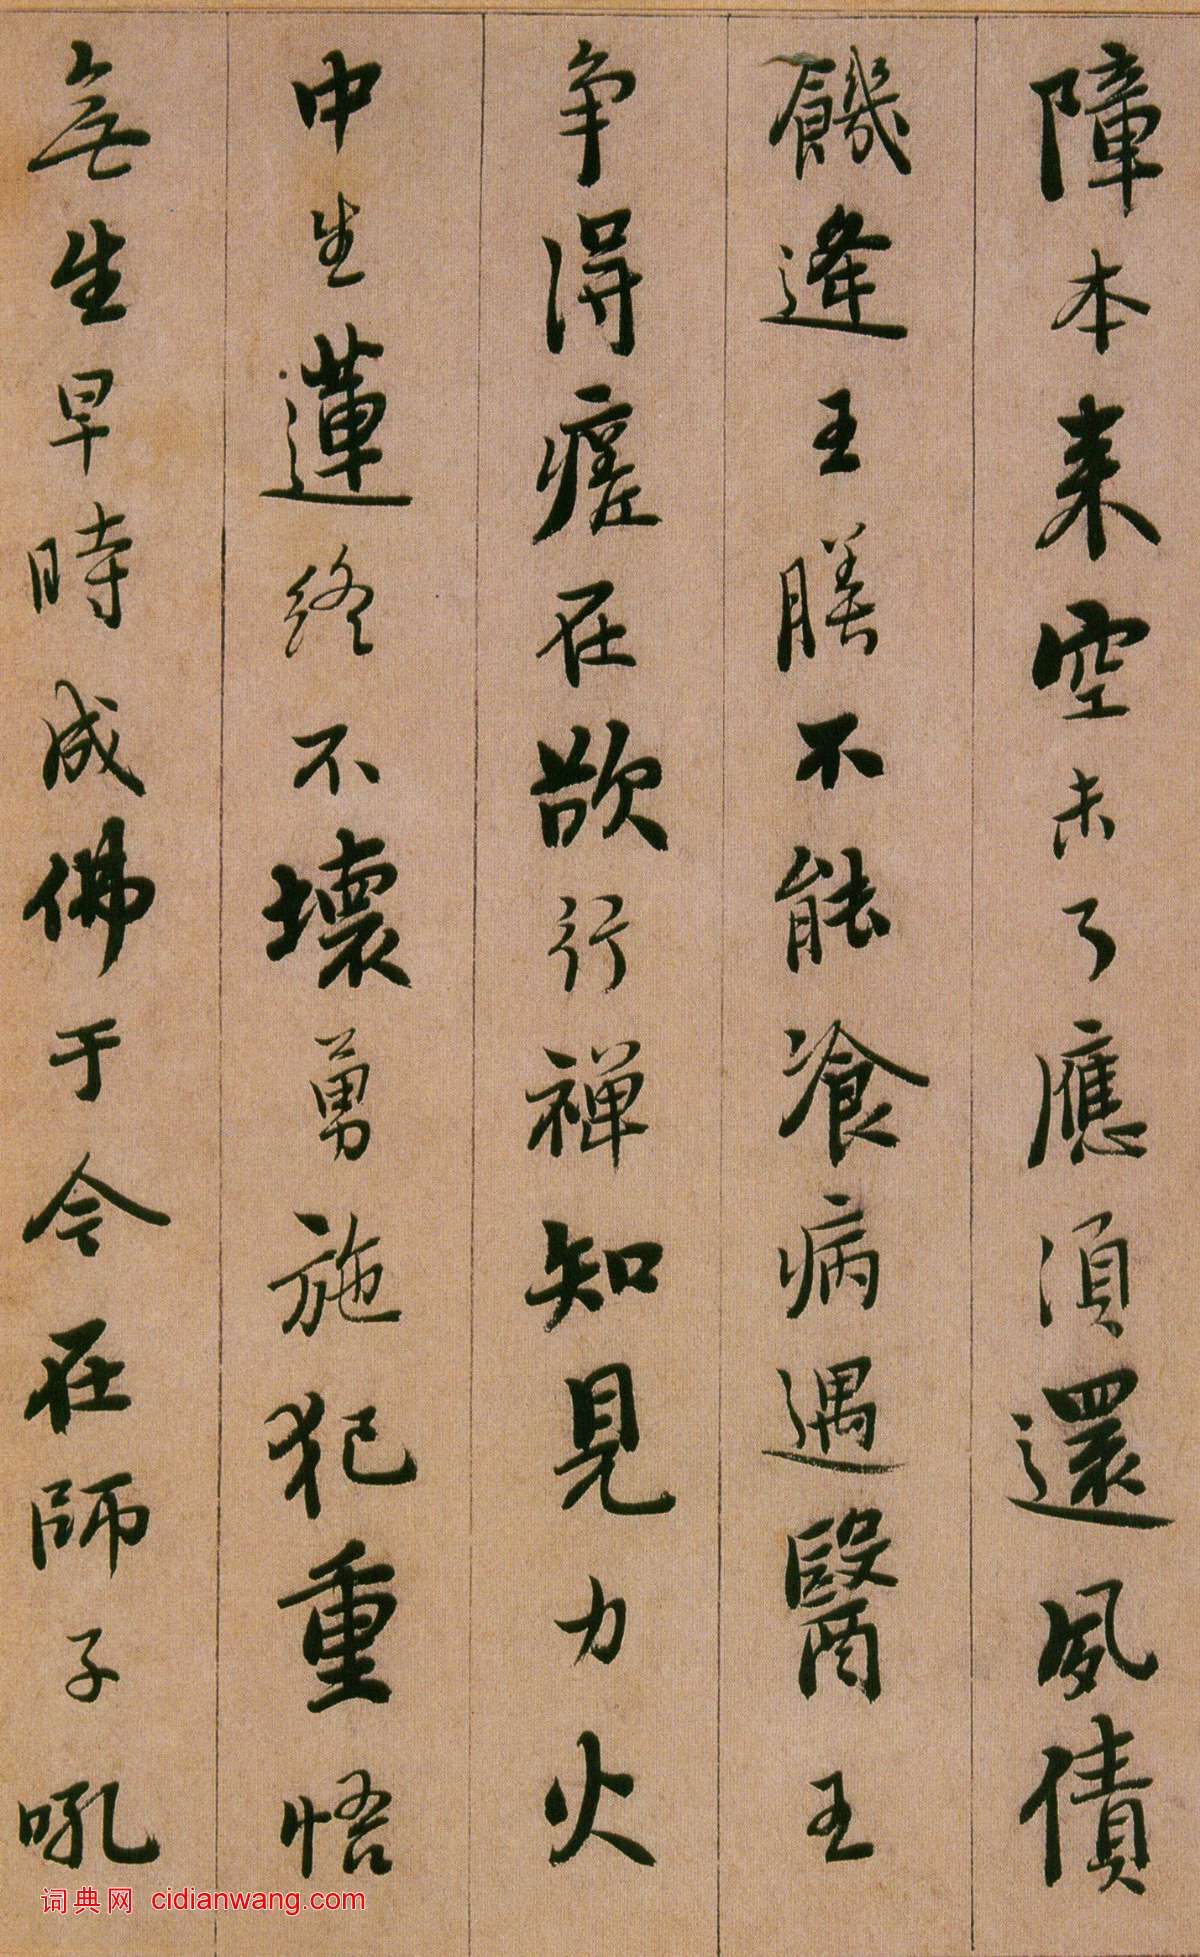 障本来空未了應須還夙債
饑逢王膳不能飡病遇醫王
争得瘥在欲行禅知見力火
中生蓮終不壞勇施犯重悟
無生早時成佛于今在師子吼
词典网 cidianwang.com